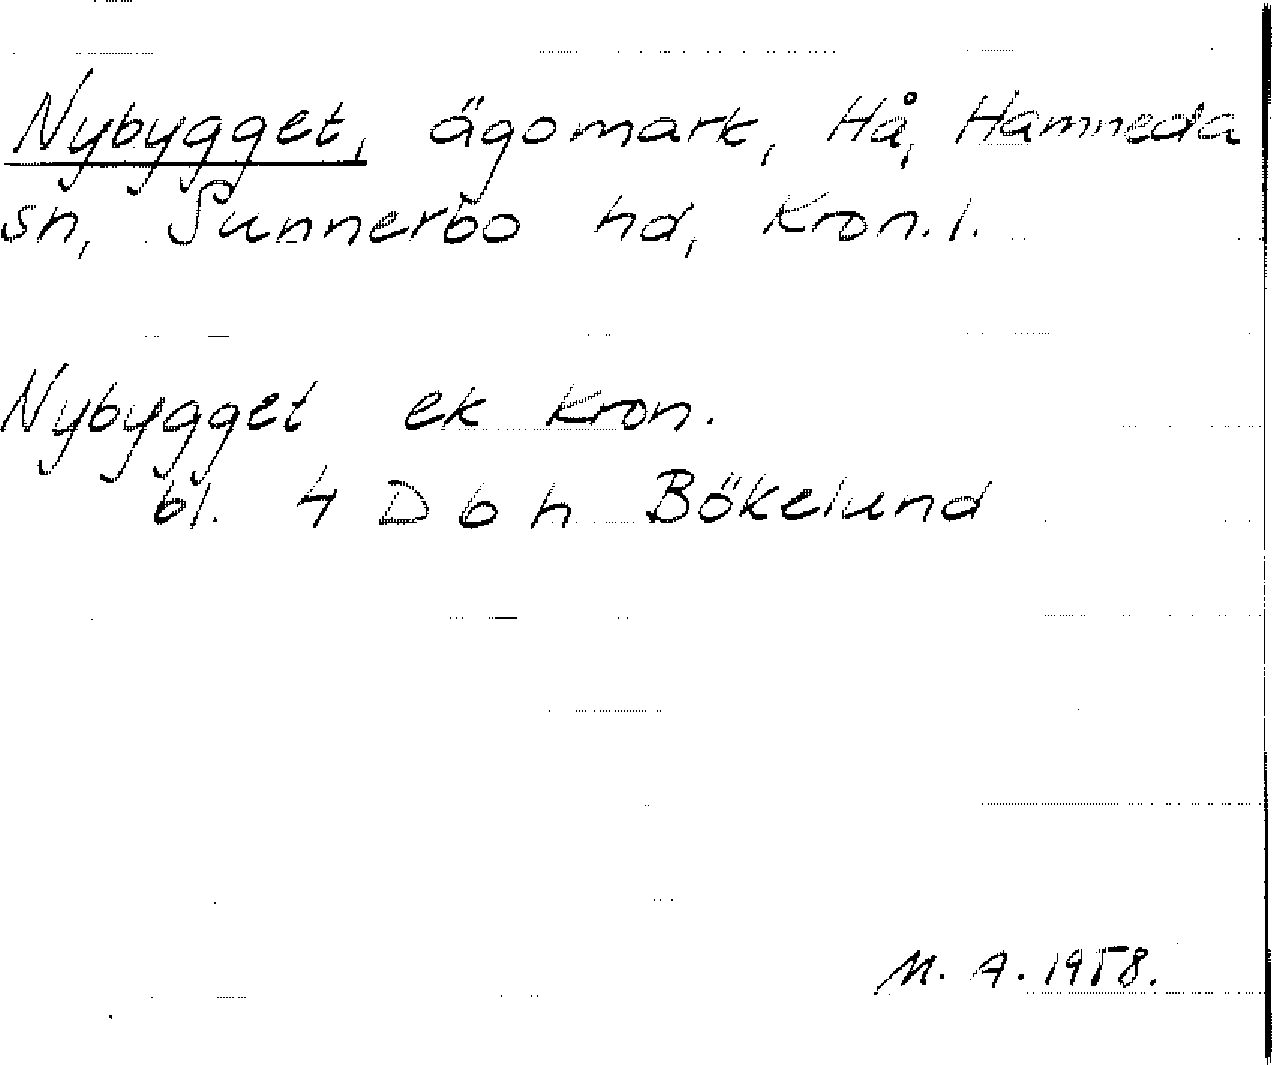 Nybygget, ägomark, Hå, Hamneda
sn, Sunnerbo hd, Kron. l.
Nybygget ek Kron.
bl. 4 D b h Bökelund
M. A. 1958.